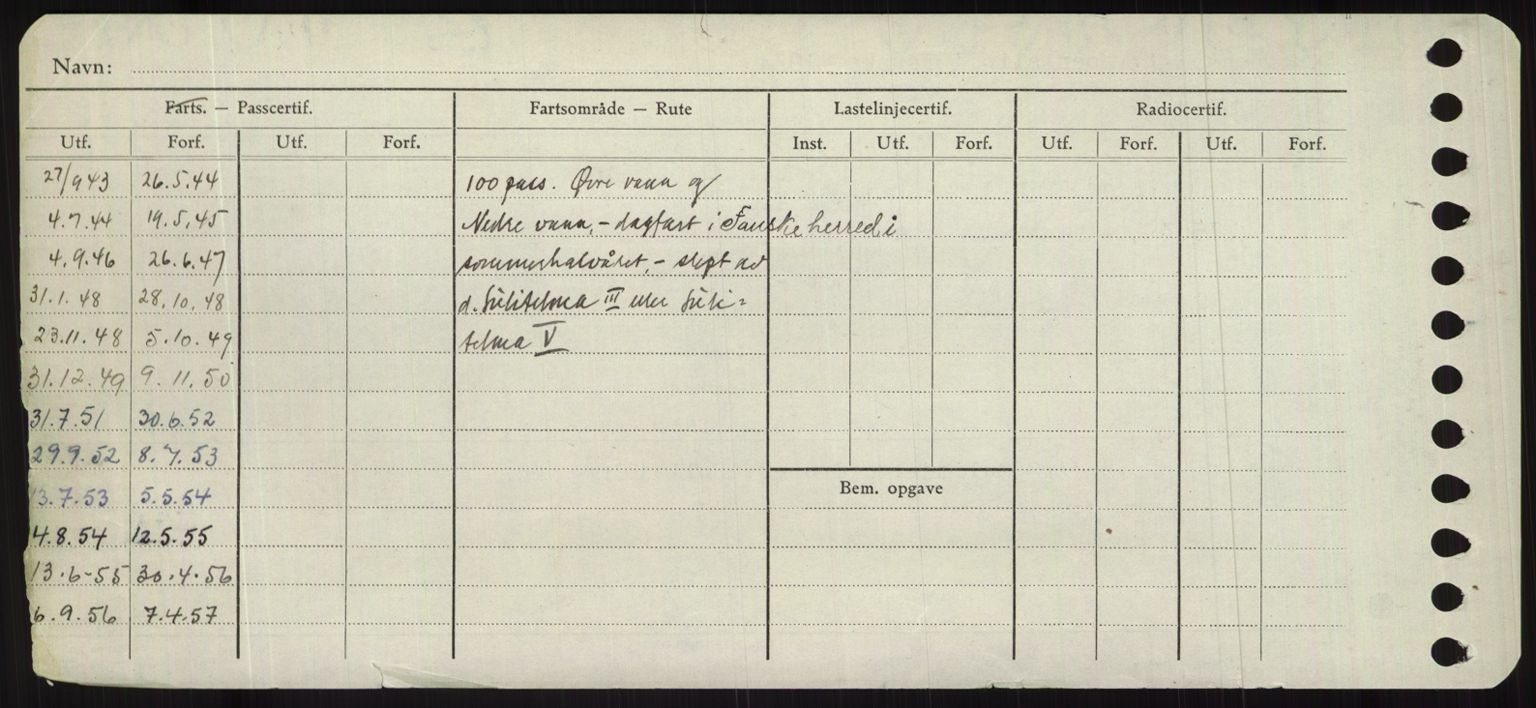 Navn:
Farts. — Passcertif. Fartsområde — Rute Lastelinjecertif. Radiocertif.
Utf. Forf. Utf. Forf. Inst. Utf. Forf. Utf. Forf. Utf. Forf.
27/9 43 26.5.44 100 pass. Øvre vann og
4.7.44 19.5.45 Nedre vann, - dagfart i Fauske herred i
4.9.46 26.6.47 sommerhalvåret, - slept av
31.1.48 28.10.48 d. Sulitelma III eller Suli=
23.11.48 5.10.49 telma V
31.12.49 9.11.50
31.7.51 30.6.52
29.9.52 8.7.53
13.7.53 5.5.54
Bem. opgave
4.8.54 12.5.55
13.6-55 30.4.56
6.9.56 7.4.57